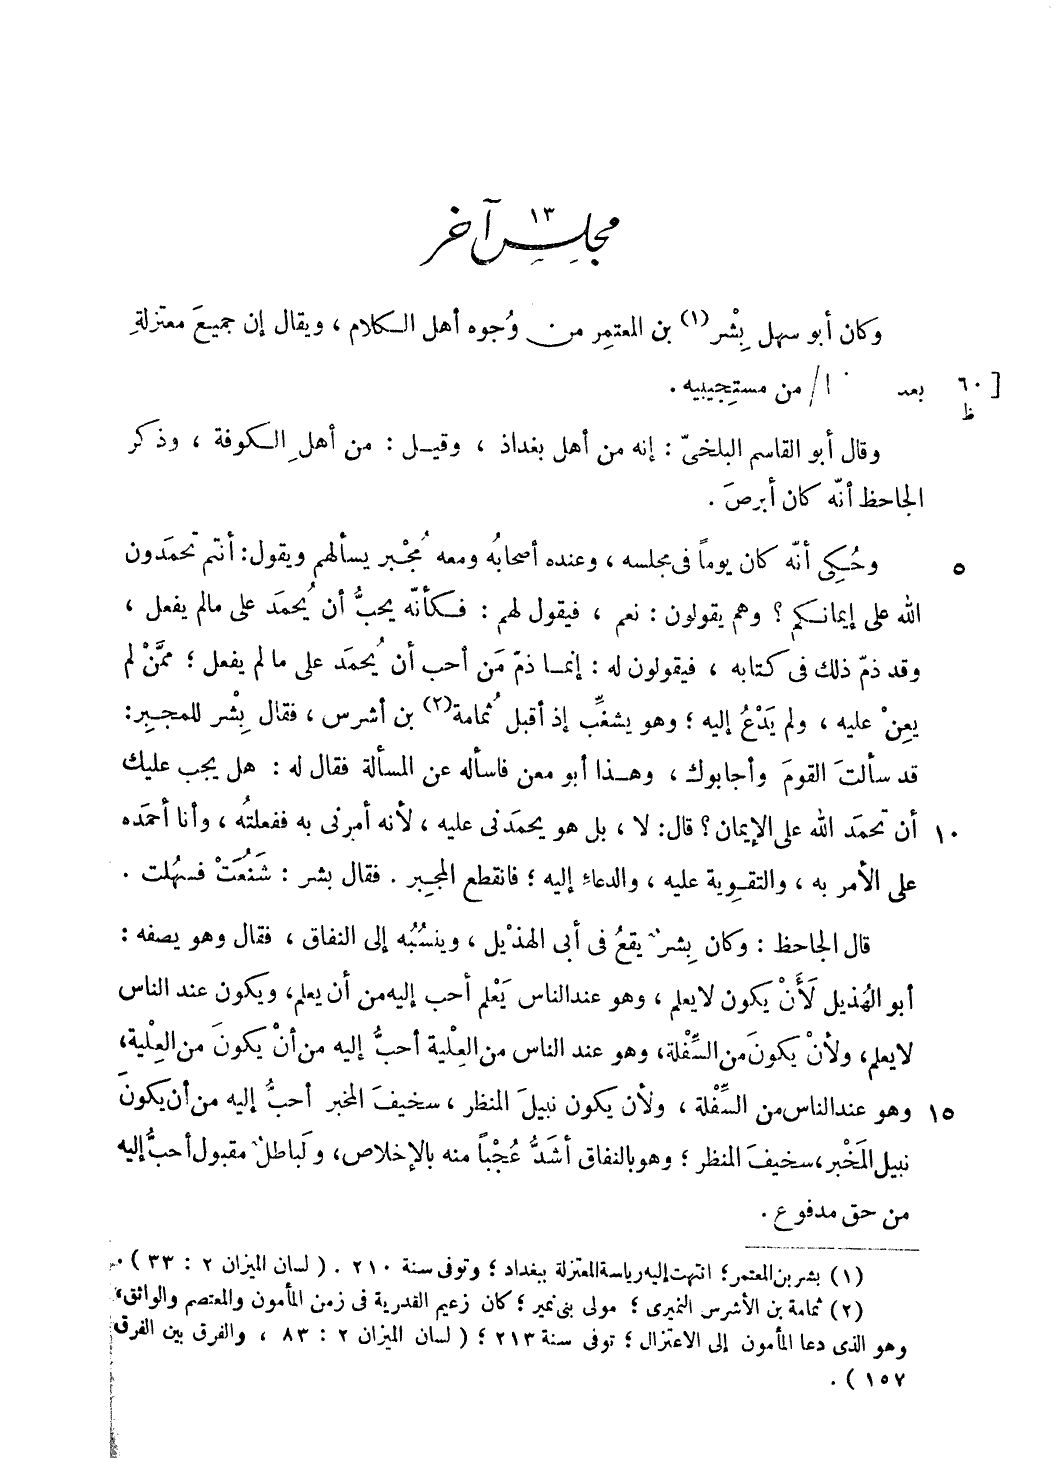 ١٣
مجلس آخر
وكان أبو سهل بِشْر(١) بن المعتمِر من وُجوه أهل الكلام ، ويقال إن جميعَ معتزلةِ
[ ٦٠ ظ بعد ا/ من مستجيبيه .
وقال أبو القاسم البلخىّ : إنه من أهل بغداذ ، وقيل : من أهلِ الكوفة ، وذكر
الجاحظ أنّه كان أبرصَ .
٥ وحُكِى أنّه كان يوماً فى مجلسه ، وعنده أصحابُه ومعه مُجْبر يسألهم ويقول: أنتم تحمَدون
الله على إيمانكم ؟ وهم يقولون : نعم ، فيقول لهم : فكأنّه يحبُّ أن يُحمَد على مالم يفعل ،
وقد ذمّ ذلك فى كتابه ، فيقولون له : إنما ذمّ مَن أحب أن يُحمَد على ما لم يفعل ؛ ممَّنْ لم
يعِنْ عليه ، ولم يَدْعُ إليه ؛ وهو يشغِّب إذ أقبل ثُمامة(٢) بن أشرس ، فقال بِشْر للمجبِر:
قد سألتَ القومَ وأجابوك ، وهذا أبو معن فاسأله عن المسألة فقال له : هل يجب عليك
١٠ أن تحمَد الله على الإيمان ؟ قال: لا ، بل هو يحمَدنى عليه ، لأنه أمرنى به ففعلتُه ، وأنا أحمَده
على الأمر به ، والتقوِية عليه ، والدعاءِ إليه ؛ فانقطع المجبِر . فقال بشر : شَنُعَتْ فسهُلت .
قال الجاحظ : وكان بِشرٌ يقعُ فى أبى الهذيل ، وينسُبُه إلى النفاق ، فقال وهو يصفه :
أبو الهُذيل لَأَنْ يكون لايعلم ، وهو عندالناس يَعْلم أحب إليه من أن يعلم، ويكون عند الناس
لايعلم، ولأنْ يكونَ من السِّفْلة، وهو عند الناس من العِلْية أحبُّ إليه من أنْ يكونَ من العِلْية،
١٥ وهو عندالناس من السِّفْلة ، ولأن يكون نبيلَ المنظر ، سخيفَ المخبر أحبُّ إليه من أن يكونَ
نبيل المَخْبر، سخيفَ المنظر ؛ وهو بالنفاق أشَدُّ عُجْباً منه بالإخلاص، ولَباطلٌ مقبول أحبُّ إليه
من حق مدفوع .
(١) بشر بن المعتمر؛ انتهت إليه رياسة المعتزلة ببغداد ؛ وتوفى سنة ٢١٠ . ( لسان الميزان ٢ : ٣٣ ) .
(٢) ثمامة بن الأشرس النميرى ؛ مولى بنى نمير ؛ كان زعيم القدرية فى زمن المأمون والمعتصم والواثق،
وهو الذى دعا المأمون إلى الاعتزال ؛ توفى سنة ٢١٣ ؛ ( لسان الميزان ٢ : ٨٣ ، والفرق بين الفرق
١٥٧ ) .